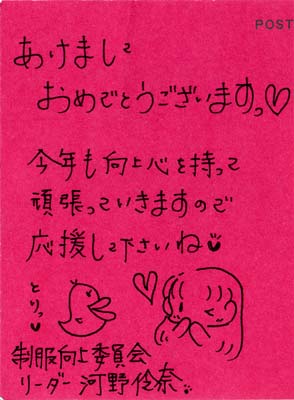 POST
あけまして
おめでとうございますっ♡
今年も向上心を持って
頑張っていきますので
応援して下さいね♥
とりっ♥
制服向上委員会
リーダー 河野伶奈